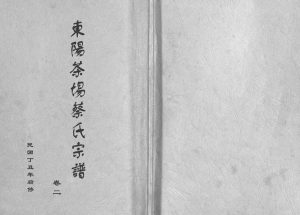 東陽茶場蔡氏宗譜
卷二
民國丁丑年啟修